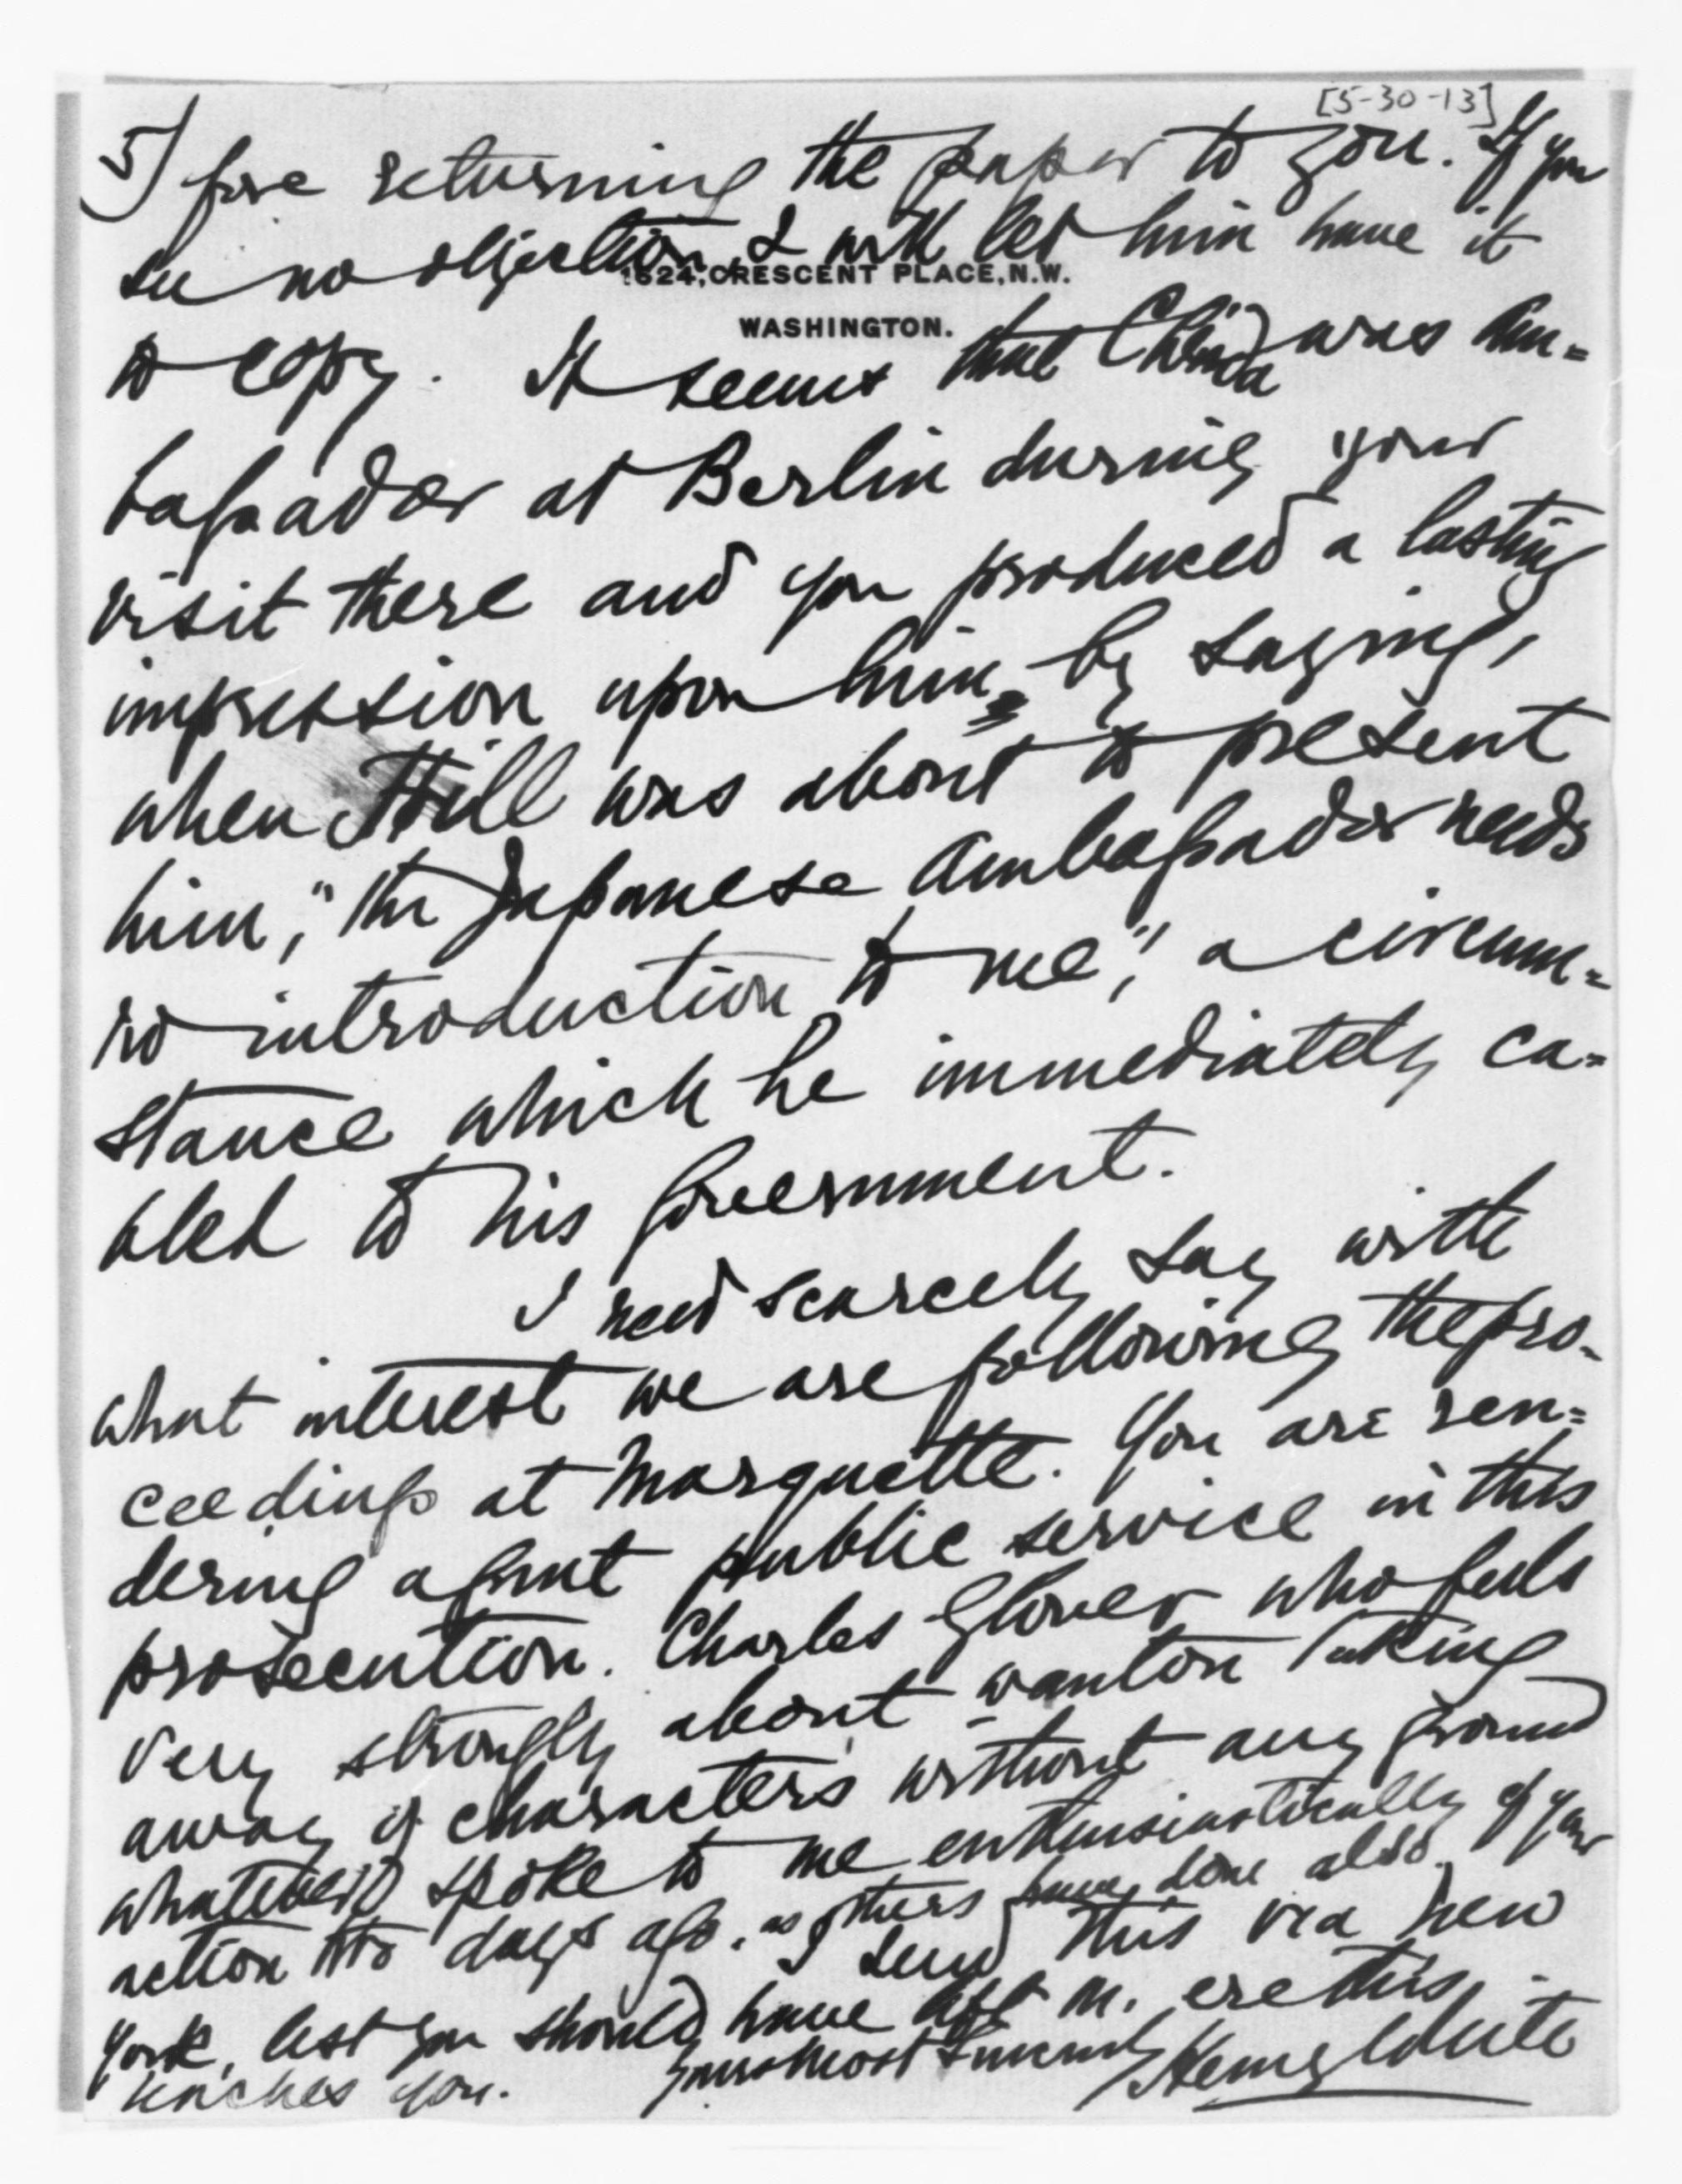 [5-30-13]
5) fore returning the paper to you. If you
see no objection, I will let him have it
1624, CRESCENT PLACE, N.W.
WASHINGTON.
to copy. It seems that Chinda was Am=
bassador at Berlin during your
visit there and you produced a lasting
impression upon him, by saying,
when Hill was about to present
him, "the Japanese Ambassador needs
no introduction to me", a circum=
stance which he immediately ca=
bled to his Government.
I need scarcely say with
what interest we are following the pro-
ceedings at Marquette. You are ren=
dering a great public service in this
prosecution. Charles Glover who feels
very strongly about wanton taking
away of characters without any ground
whatever spoke to me enthusiastically of your
action two days ago, as others have done also.
I send this via New
York, lest you should have left M. ere this
reaches you.
Yours most sincerely
Henry White